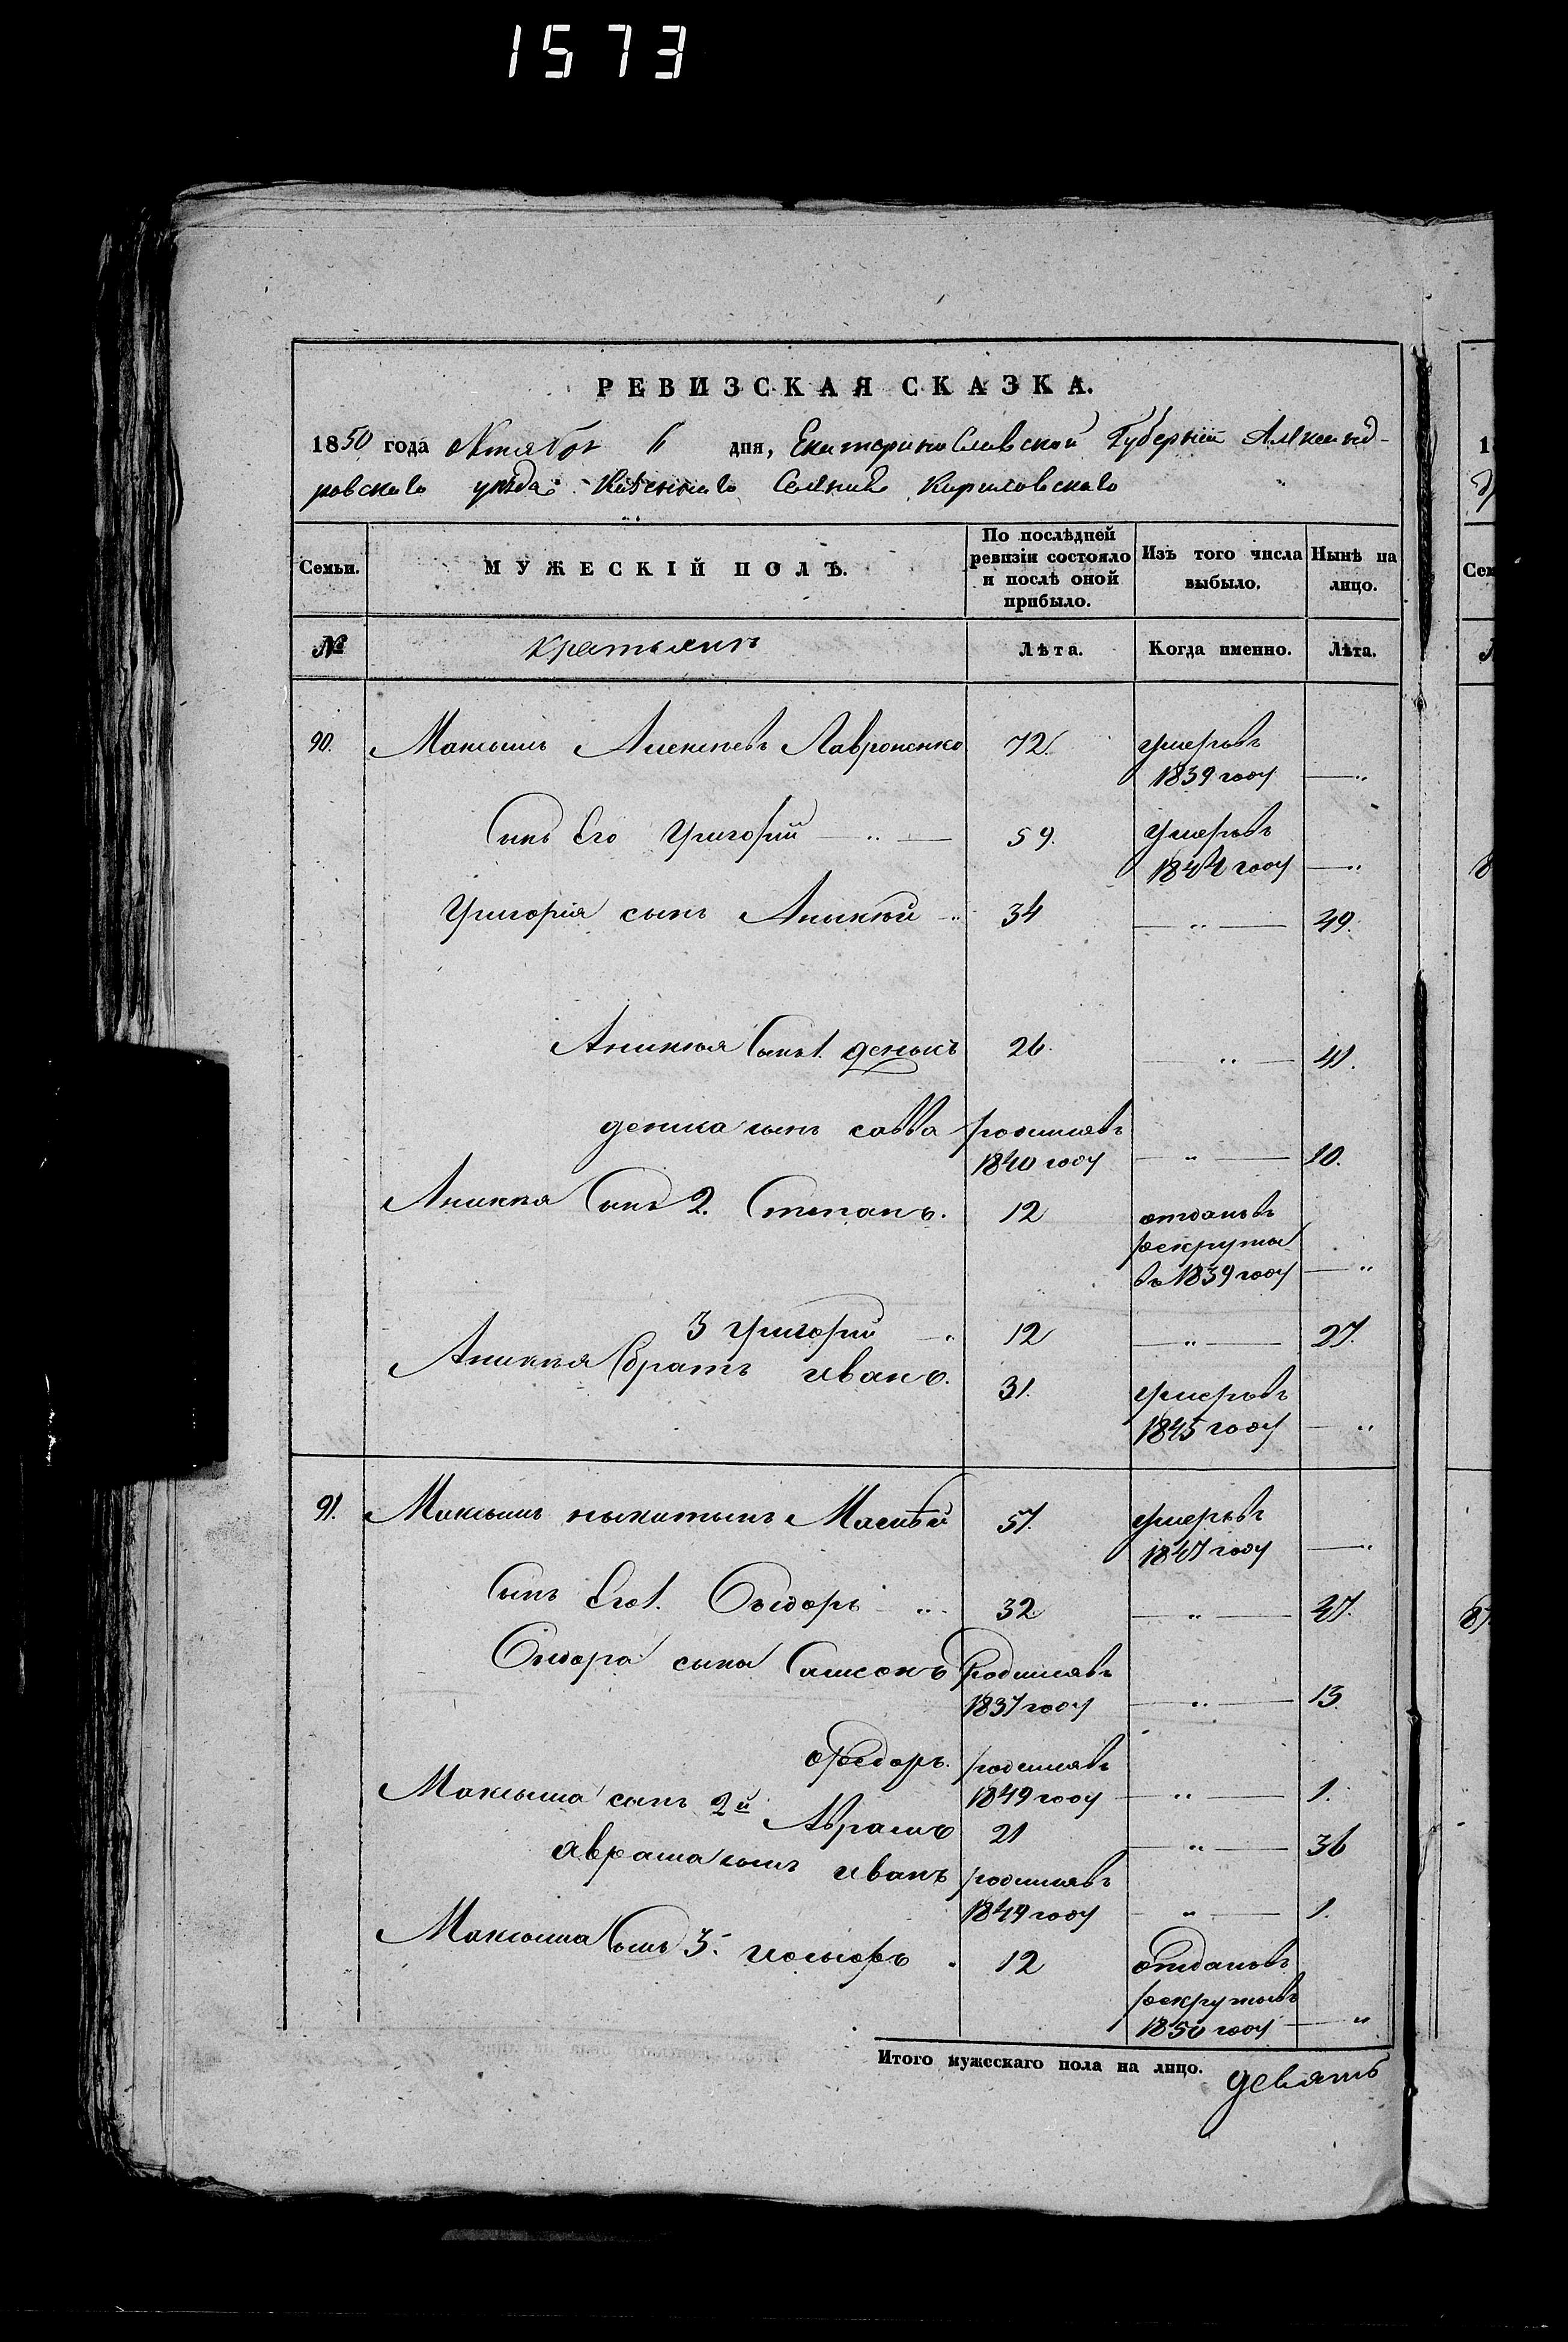 1573
РЕВИЗСКАЯ СКАЗКА.
1850 года Октября " дня, Екатеринославской Губернии Александ-
ровского уезда Казенного Селения Кириловского
Семьи. МУЖЕСКІЙ ПОЛЪ. По послѣдней ревизіи состояло и послѣ оной прибыло. Изъ того числа выбыло. Нынѣ на лицо.
№ Крестьянъ Лѣта. Когда именно. Лѣта.
90. Максымъ Алексеевъ Лавроненко 72. умеръ въ
1839 году — "
Сынъ Его Григорий — " — 59. Умеръ въ
1844 году — "
Григория сынъ Аныкий " 34 — " — 49.
Аникия Сынъ 1. денысъ 26. — " — 41.
дениса сынъ савва родился въ
1840 году — " — 10.
Аникия Сынъ 2. Степанъ. 12 отданъ въ
рекруты
въ 1839 году — "
3 Григорий — " 12 — " — 27.
Аникия братъ иванъ. 31. умеръ въ
1845 году — "
91. Максымъ ныкытынъ Масъ 57. умеръ въ
1847 году — "
Сынъ Его 1. Сыдоръ — " 32. — " — 47.
Сыдора сына Самсонъ Родился въ
1837 году — " — 13
Федоръ. родился въ
1849 году — " — 1.
Максыма сынъ 2й Аврамъ 21 — " — 36
Аврама сынъ иванъ родился въ
1849 году — " — 1.
Максыма Сынъ 3. иосыфъ " 12 Отданъ въ
рекруты въ
1850 году — "
Итого мужескаго пола на лицо. девять